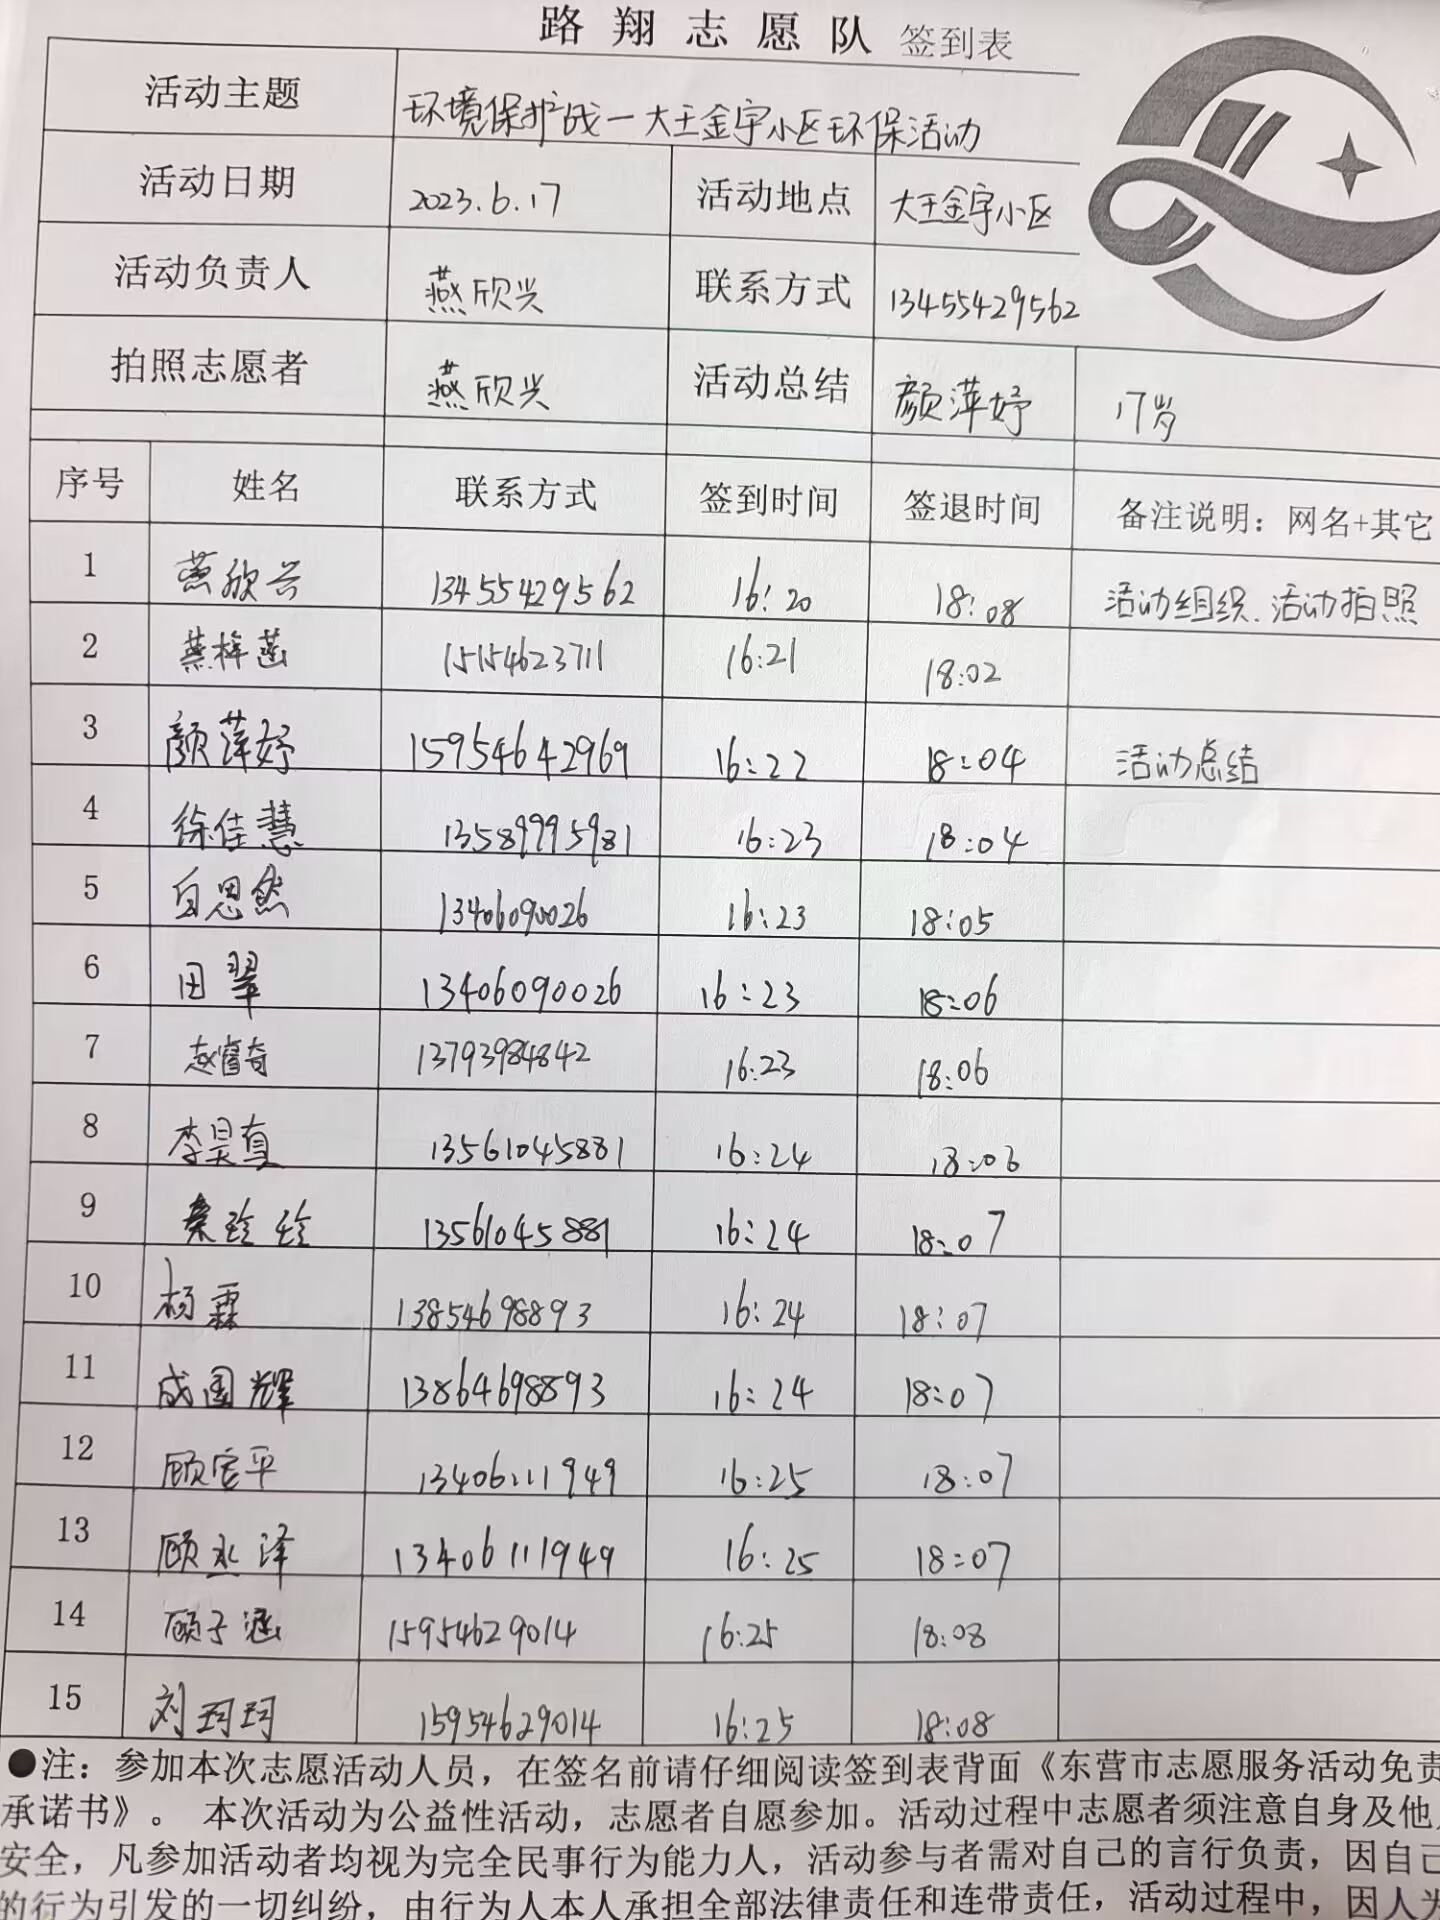 路翔志愿队 签到表
活动主题 环境保护战一大王金宇小区环保活动
活动日期 2023.6.17 活动地点 大王金宇小区
活动负责人 燕欣兴 联系方式 13455429562
拍照志愿者 燕欣兴 活动总结 颜萍妤 17岁
序号 姓名 联系方式 签到时间 签退时间 备注说明：网名+其它
1 燕欣兴 13455429562 16:20 18:08 活动组织.活动拍照
2 燕梓菡 15154623711 16:21 18:02
3 颜萍妤 15954642969 16:22 18:04 活动总结
4 徐佳慧 13589995981 16:23 18:04
5 自思然 13406090026 16:23 18:05
6 田翠 13406090026 16:23 18:06
7 赵睿奇 13793984842 16:23 18:06
8 李昊真 13561045881 16:24 18:06
9 秦玲玲 13561045881 16:24 18:07
10 杨霖 13854698893 16:24 18:07
11 成国辉 13864698893 16:24 18:07
12 顾官平 13406111949 16:25 18:07
13 顾永泽 13406111949 16:25 18:07
14 顾子涵 15954629014 16:25 18:08
15 刘珂珂 15954629014 16:25 18:08
●注：参加本次志愿活动人员，在签名前请仔细阅读签到表背面《东营市志愿服务活动免责
承诺书》。 本次活动为公益性活动，志愿者自愿参加。活动过程中志愿者须注意自身及他
安全，凡参加活动者均视为完全民事行为能力人，活动参与者需对自己的言行负责，因自己
的行为引发的一切纠纷，由行为人本人承担全部法律责任和连带责任，活动过程中，因人为